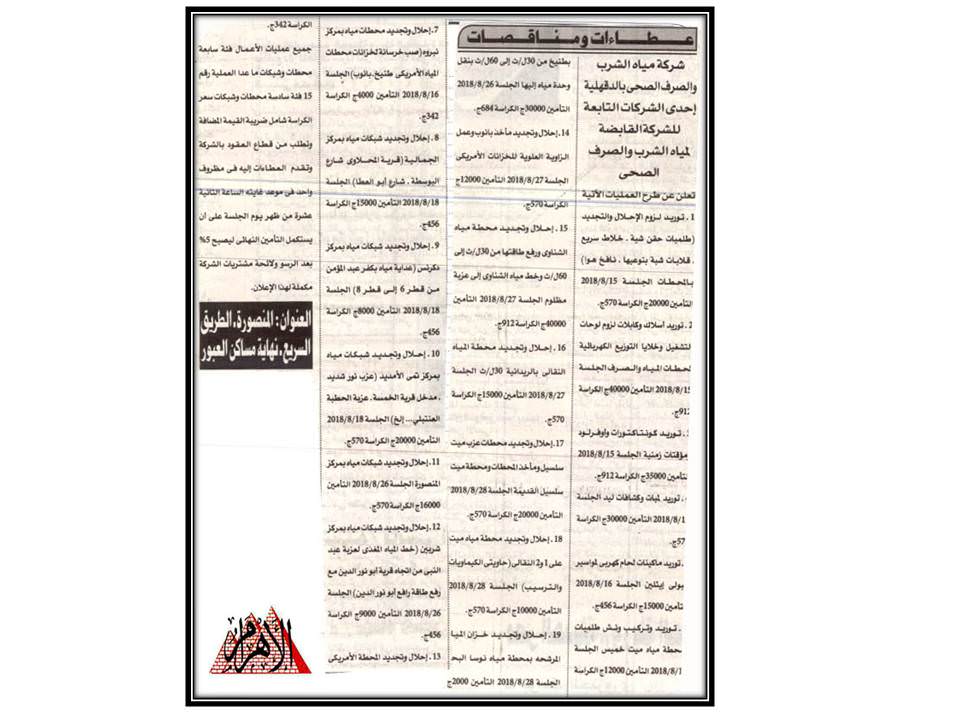 عطاءات ومناقصات
شركة مياه الشرب
والصرف الصحى بالدقهلية
إحدى الشركات التابعة
للشركة القابضة
لمياه الشرب والصرف
الصحى
تعلن عن طرح العمليات الآتية
1. توريد لزوم الإحلال والتجديد
(طلمبات حقن شبة. خلاط سريع
. قلابات شبة بنوعيها. نافخ هوا)
بالمحطات الجلسة 2018/8/15
التأمين 20000ج الكراسة 570ج.
2. توريد أسلاك وكابلات لزوم لوحات
لتشغيل وخلايا التوزيع الكهربائية
لحطات المياه والصرف الجلسة
2018/8/15 التأمين 40000ج الكراسة
912
. توريد كونتاكتورات وأوفرلود
مؤقتات زمنية الجلسة 2018/8/15
تأمين 35000ج الكراسة 912ج.
. توريد لمبات وكشافات ليد الجلسة
2018/8/1 التأمين 30000ج الكراسة
57
. توريد ماكينات لحام كهربى لمواسير
بولى إيثلين الجلسة 2018/8/16
تأمين 15000ج الكراسة 456ج.
. توريد وتركيب ونش طلمبات
محطة مياه ميت خميس الجلسة
2018/8/1 التأمين 12000ج الكراسة
بطنيخ من 30ل/ث إلى 60ل/ث بنقل
وحدة مياه إليها الجلسة 2018/8/26
التأمين 30000ج الكراسة 684ج.
14. إحلال وتجديد مأخذ بانوب وعمل
الزاوية العلوية للخزانات الأمريكى
الجلسة 2018/8/27 التأمين 12000ج
الكراسة 570ج.
15. إحلال وتجديد محطة مياه
الشناوى ورفع طاقتها من 30ل/ث إلى
60ل/ث وخط مياه الشناوى إلى عزبة
مظلوم الجلسة 2018/8/27 التأمين
40000ج الكراسة 912ج.
16. إحلال وتجديد محطة المياه
النقالى بالريدانية 30ل/ث الجلسة
2018/8/27 التأمين 15000ج الكراسة
570ج.
17. إحلال وتجديد محطات عزب ميت
سلسيل ومأخذ المحطات ومحطة ميت
سلسيل القديمة الجلسة 2018/8/28
التأمين 20000ج الكراسة 570ج.
18. إحلال وتجديد محطة مياه ميت
على 1و2 النقالى (حاويتى الكيماويات
والترسيب) الجلسة 2018/8/28
التأمين 10000ج الكراسة 570ج.
19. إحلال وتجديد خزان الميا
المرشحه بمحطة مياه نوسا البح
الجلسة 2018/8/28 التأمين 2000ج
7. إحلال وتجديد محطات مياه بمركز
نبروه (صب خرسانة لخزانات محطات
المياه الأمريكى طنيخ. بانوب) الجلسة
2018/8/16 التأمين 4000ج الكراسة
342ج.
8. إحلال وتجديد شبكات مياه بمركز
الجمالية (قرية المحلاوى شارع
البوسطة. شارع أبو العطا) الجلسة
2018/8/18 التأمين 15000ج الكراسة
456ج.
9. إحلال وتجديد شبكات مياه بمركز
دكرنس (عداية مياه بكفر عبد المؤمن
من قطر 6 إلى قطر 8) الجلسة
2018/8/18 التأمين 8000ج الكراسة
456ج.
10. إحلال وتجديد شبكات مياه
بمركز تمى الأمديد (عزب نور شديد
. مدخل قرية الخمسة. عزبة الحطبة
العنتبلى... إلخ) الجلسة 2018/8/18
التأمين 20000ج الكراسة 570ج.
11. إحلال وتجديد شبكات مياه بمركز
المنصورة الجلسة 2018/8/26 التأمين
16000ج الكراسة 570ج.
12. إحلال وتجديد شبكات مياه بمركز
شربين (خط المياه المغذى لعزبة عبد
النبى من اتجاه قرية أبو نور الدين مع
رفع طاقة رافع أبو نور الدين) الجلسة
2018/8/26 التأمين 9000ج الكراسة
456ج.
13. إحلال وتجديد المحطة الأمريكى
الكراسة 342ج.
جميع عمليات الأعمال فئة سابعة
محطات وشبكات ما عدا العملية رقم
15 فئة سادسة محطات وشبكات سعر
الكراسة شامل ضريبة القيمة المضافة
وتطلب من قطاع العقود بالشركة
وتقدم العطاءات إليه فى مظروف
واحد فى موعد غايته الساعة الثانية
عشرة من ظهر يوم الجلسة على أن
يستكمل التأمين النهائى ليصبح 5%
بعد الرسو ولائحة مشتريات الشركة
مكملة لهذا الإعلان.
العنوان: المنصورة. الطريق
السريع. نهاية مساكن العبور
الأهرام